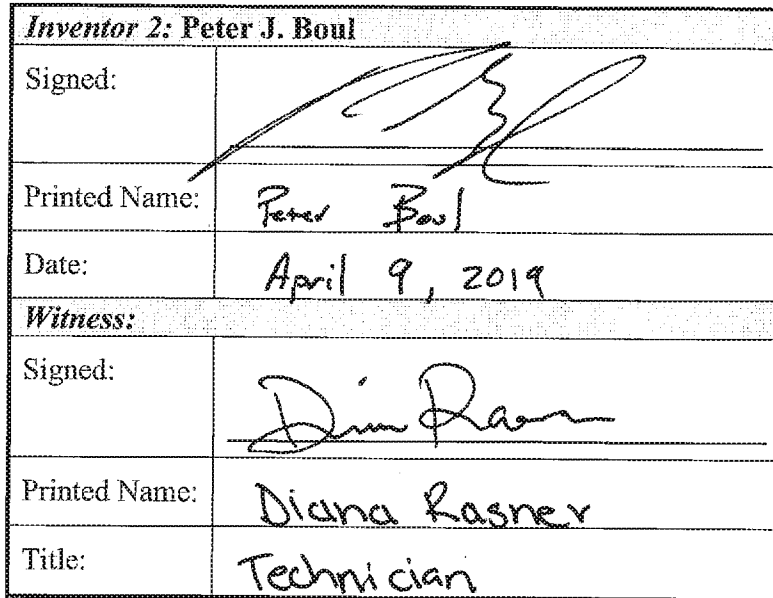 Inventor 2: Peter J. Boul
Signed:
Printed Name: Peter Boul
Date: April 9, 2019
Witness:
Signed:
Printed Name: Diana Rasner
Title: Technician